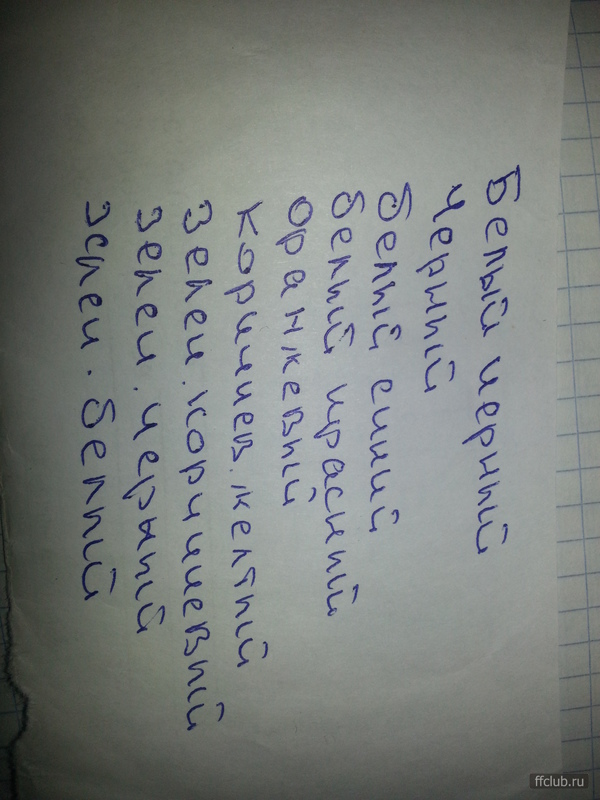 Белый черный
черный
белый синий
белый красный
оранжевый
коричнев. желтый
зелен. коричневый
зелен. черный
зелен. белый
ffclub.ru